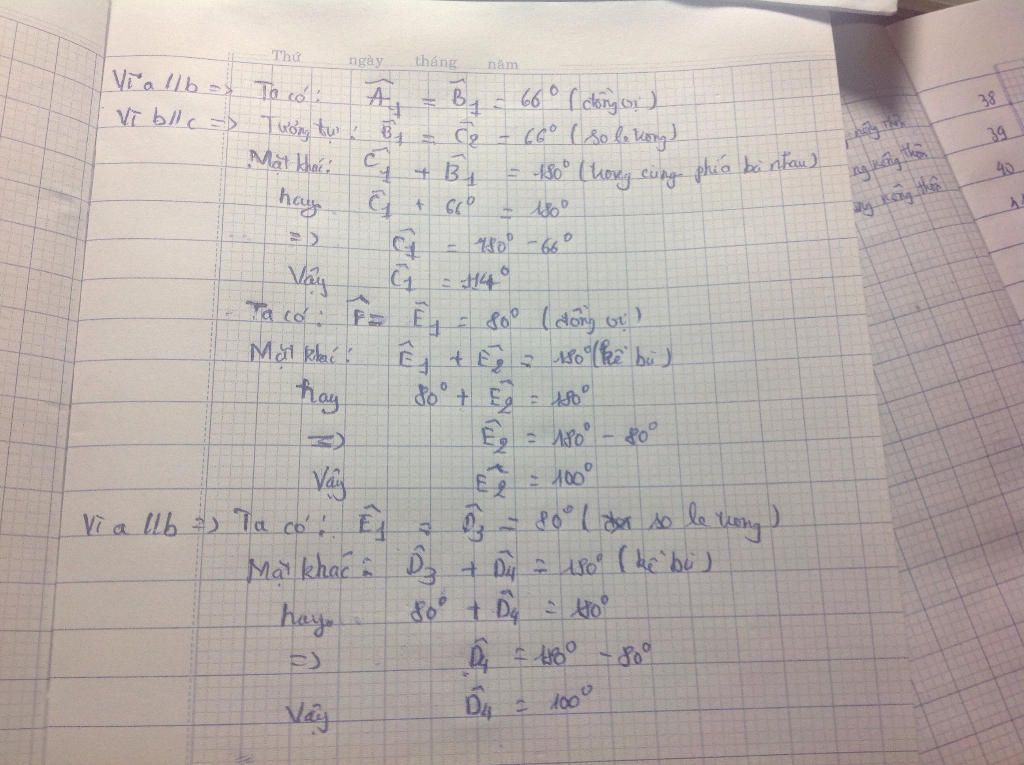 Thứ ngày tháng năm
Vì a // b => Ta có: Â1 = B̂1 = 66° (đồng vị)
Vì b // c => Tương tự: B̂1 = Ĉ2 = 66° (so le trong)
Mặt khác: Ĉ1 + B̂1 = 180° (trong cùng phía bù nhau)
hay Ĉ1 + 66° = 180°
=> Ĉ1 = 180° - 66°
Vậy Ĉ1 = 114°
Ta có: F̂ = Ê1 = 80° (đồng vị)
Mặt khác: Ê1 + Ê2 = 180° (kề bù)
hay 80° + Ê2 = 180°
=> Ê2 = 180° - 80°
Vậy Ê2 = 100°
Vì a // b => Ta có: Ê1 = D̂3 = 80° (so le trong)
Mặt khác: D̂3 + D̂4 = 180° (kề bù)
hay 80° + D̂4 = 180°
=> D̂4 = 180° - 80°
Vậy D̂4 = 100°
38
39
40